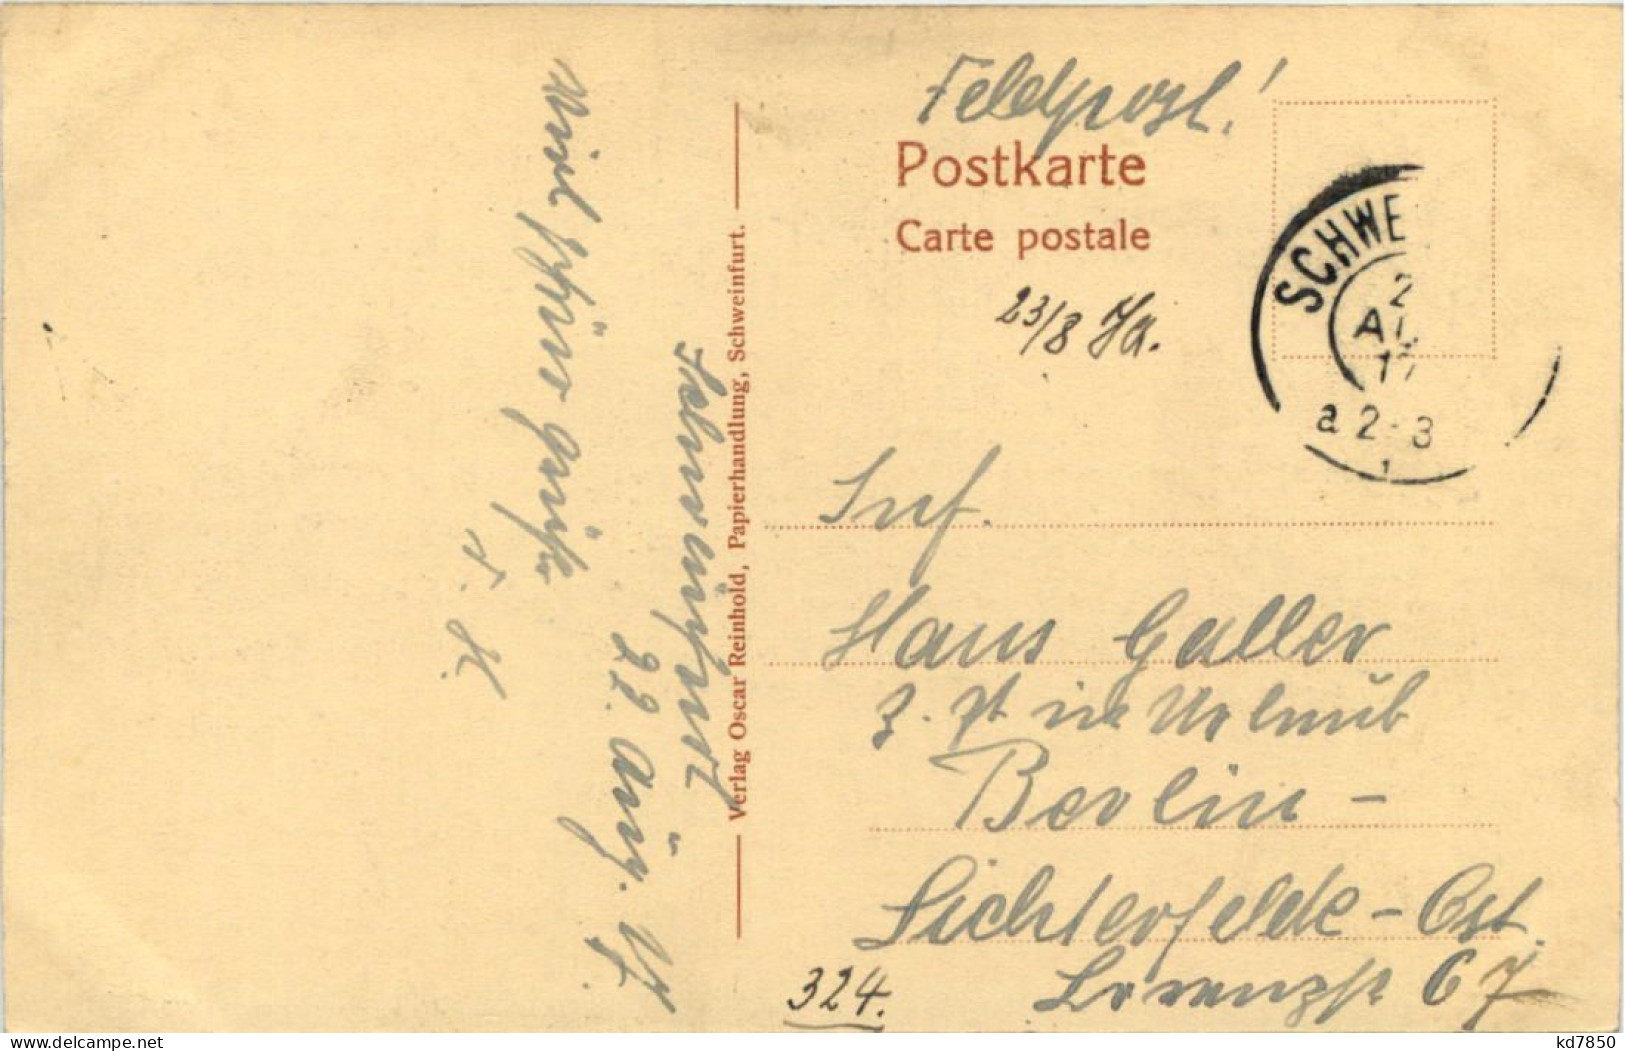 Feldpost!
Postkarte
Carte postale
23/8 Ja.
SCHWE
2
AU
17
a 2-3
Inf.
Hans Galler
z. Zt in Urlaub
Berlin -
Lichterfelde - Ost.
Lorenzstr 67
324.
Verlag Oscar Reinhold, Papierhandlung, Schweinfurt.
Schweinfurt
22. Aug. 17.
Grüße
kd7850